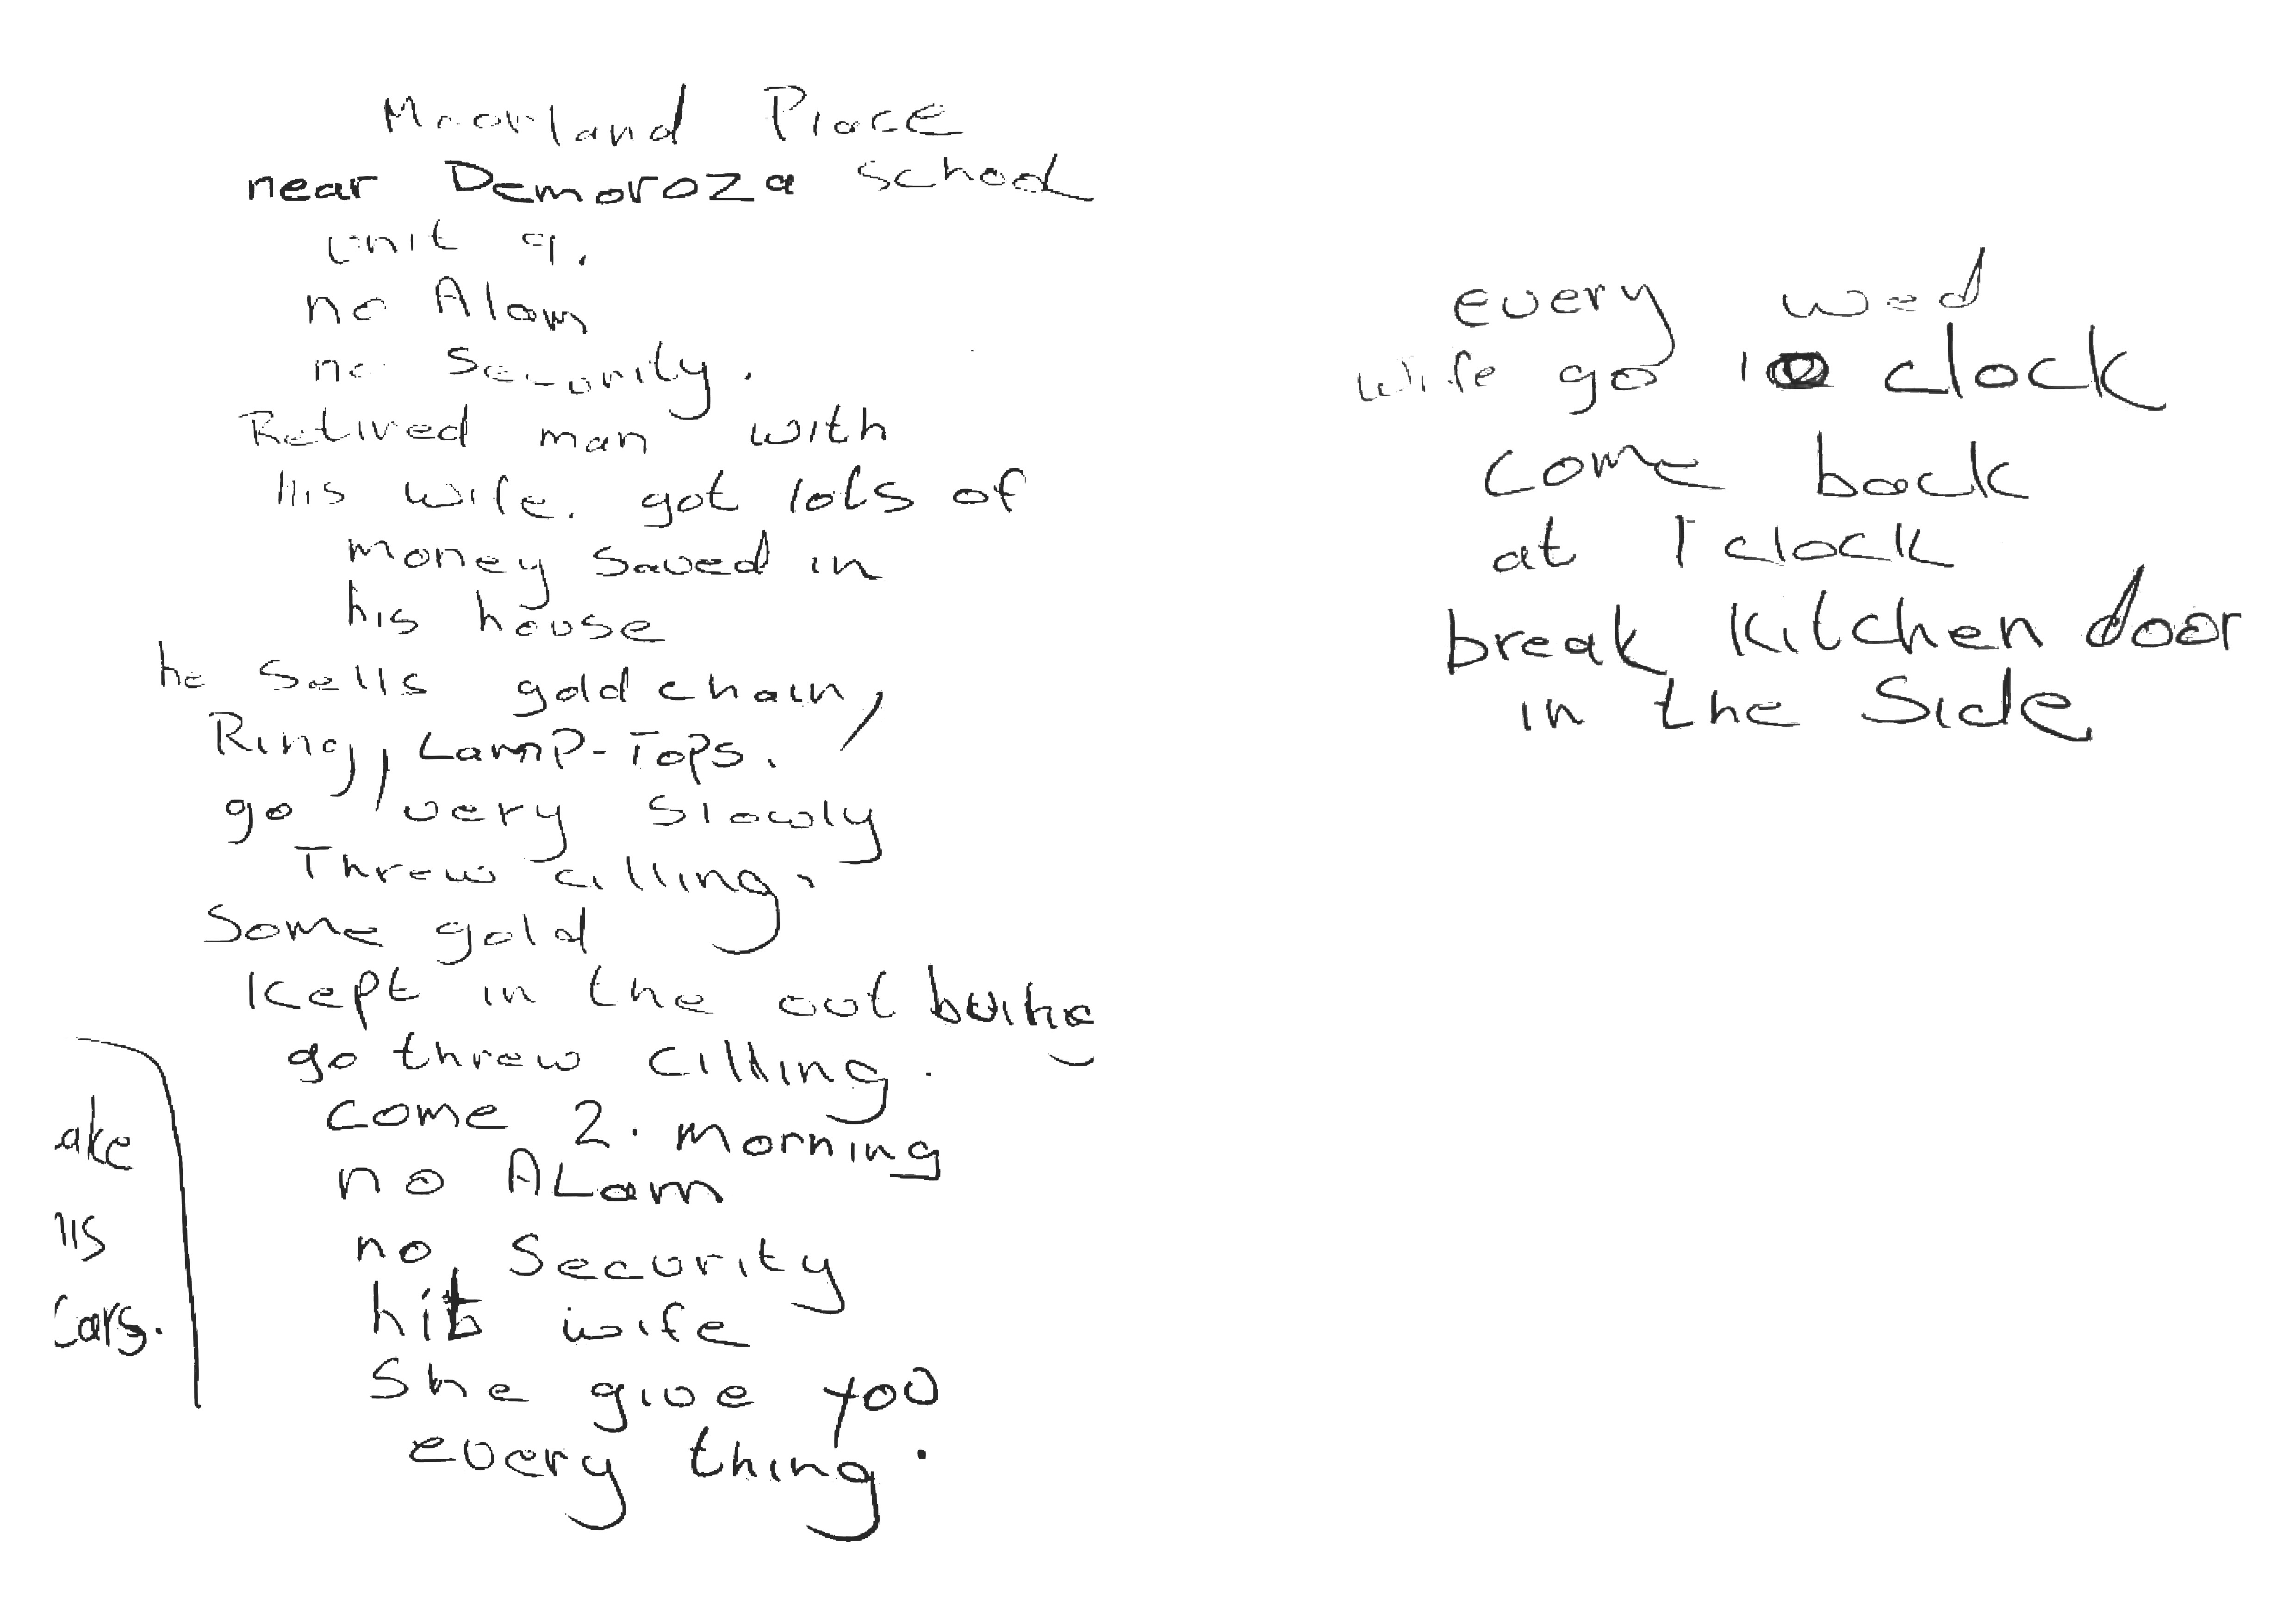 Moorland Place
near Demoroza school
unit 9.
no Alam
no Security.
Retired man with
his wife. got lots of
money saved in
his house
he sells gold chain,
Ring, Lamp-Tops.
go very slowly
Threw cilling.
Some gold
kept in the out
go threw cilling.
come 2. morning
no ALam
no Security
hit wife
She give you
every thing.
ake
his
cars.
every wed
wife go 10 clock
come back
at 1 clock
break kitchen door
in the Side